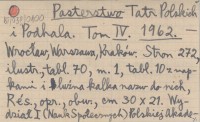 Pasterstwo Tatr Polskich
i Podhala. Tom IV. 1962. —
Wrocław, Warszawa, Kraków. Stron 272,
ilustr., tabl. 70, m. 1, tabl. 10 z map-
kami i luźna kalka nazw do nich,
Rés., opr., obw., cm 30 x 21. Wy-
dział I (Nauk Społecznych) Polskiej Akade-